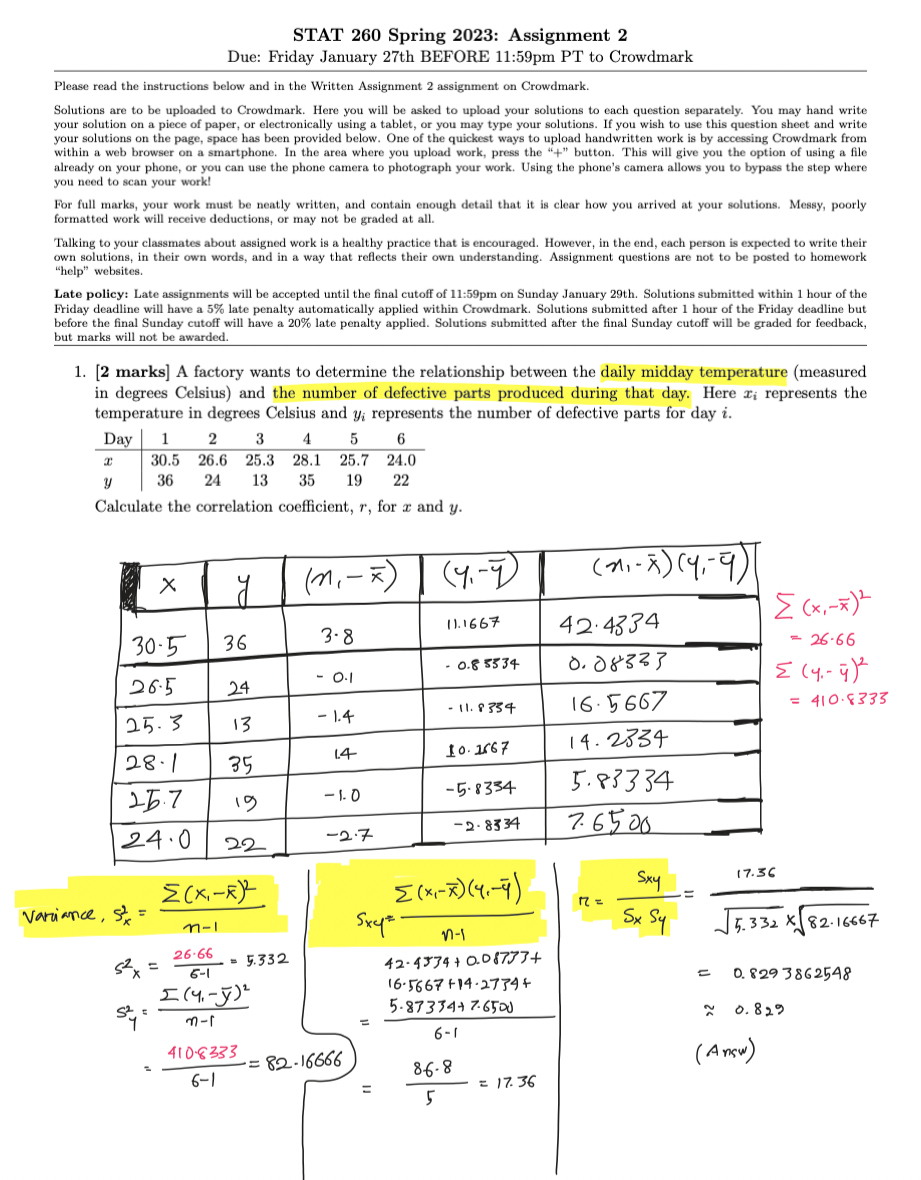 STAT 260 Spring 2023: Assignment 2
Due: Friday January 27th BEFORE 11:59pm PT to Crowdmark
Please read the instructions below and in the Written Assignment 2 assignment on Crowdmark.
Solutions are to be uploaded to Crowdmark. Here you will be asked to upload your solutions to each question separately. You may hand write
your solution on a piece of paper, or electronically using a tablet, or you may type your solutions. If you wish to use this question sheet and write
your solutions on the page, space has been provided below. One of the quickest ways to upload handwritten work is by accessing Crowdmark from
within a web browser on a smartphone. In the area where you upload work, press the "+" button. This will give you the option of using a file
already on your phone, or you can use the phone camera to photograph your work. Using the phone's camera allows you to bypass the step where
you need to scan your work!
For full marks, your work must be neatly written, and contain enough detail that it is clear how you arrived at your solutions. Messy, poorly
formatted work will receive deductions, or may not be graded at all.
Talking to your classmates about assigned work is a healthy practice that is encouraged. However, in the end, each person is expected to write their
own solutions, in their own words, and in a way that reflects their own understanding. Assignment questions are not to be posted to homework
"help" websites.
Late policy: Late assignments will be accepted until the final cutoff of 11:59pm on Sunday January 29th. Solutions submitted within 1 hour of the
Friday deadline will have a 5% late penalty automatically applied within Crowdmark. Solutions submitted after 1 hour of the Friday deadline but
before the final Sunday cutoff will have a 20% late penalty applied. Solutions submitted after the final Sunday cutoff will be graded for feedback,
but marks will not be awarded.
1. [2 marks] A factory wants to determine the relationship between the daily midday temperature (measured
in degrees Celsius) and the number of defective parts produced during that day. Here xᵢ represents the
temperature in degrees Celsius and yᵢ represents the number of defective parts for day i.
Day 1 2 3 4 5 6
x 30.5 26.6 25.3 28.1 25.7 24.0
y 36 24 13 35 19 22
Calculate the correlation coefficient, r, for x and y.
x y (xᵢ-x̄) (yᵢ-ȳ) (xᵢ-x̄)(yᵢ-ȳ)
30.5 36 3.8 11.1667 42.4334
26.5 24 -0.1 -0.8334 0.08333
25.3 13 -1.4 -11.8334 16.5667
28.1 35 1.4 10.1667 14.2334
25.7 19 -1.0 -5.8334 5.83334
24.0 22 -2.7 -2.8334 7.6500
Σ(xᵢ-x̄)²
= 26.66
Σ(yᵢ-ȳ)²
= 410.8333
Variance, s²x = Σ(xᵢ-x̄)² / n-1
s²x = 26.66 / 6-1 = 5.332
s²y = Σ(yᵢ-ȳ)² / n-1
= 410.8333 / 6-1 = 82.16666
Sxy = Σ(xᵢ-x̄)(yᵢ-ȳ) / n-1
42.4334+0.08333+
16.5667+14.2334+
5.83334+7.6500
= 6-1
= 86.8 / 5 = 17.36
r = Sxy / Sx Sy = 17.36 / √5.332 × √82.16667
= 0.8293862548
≈ 0.829
(Answ)